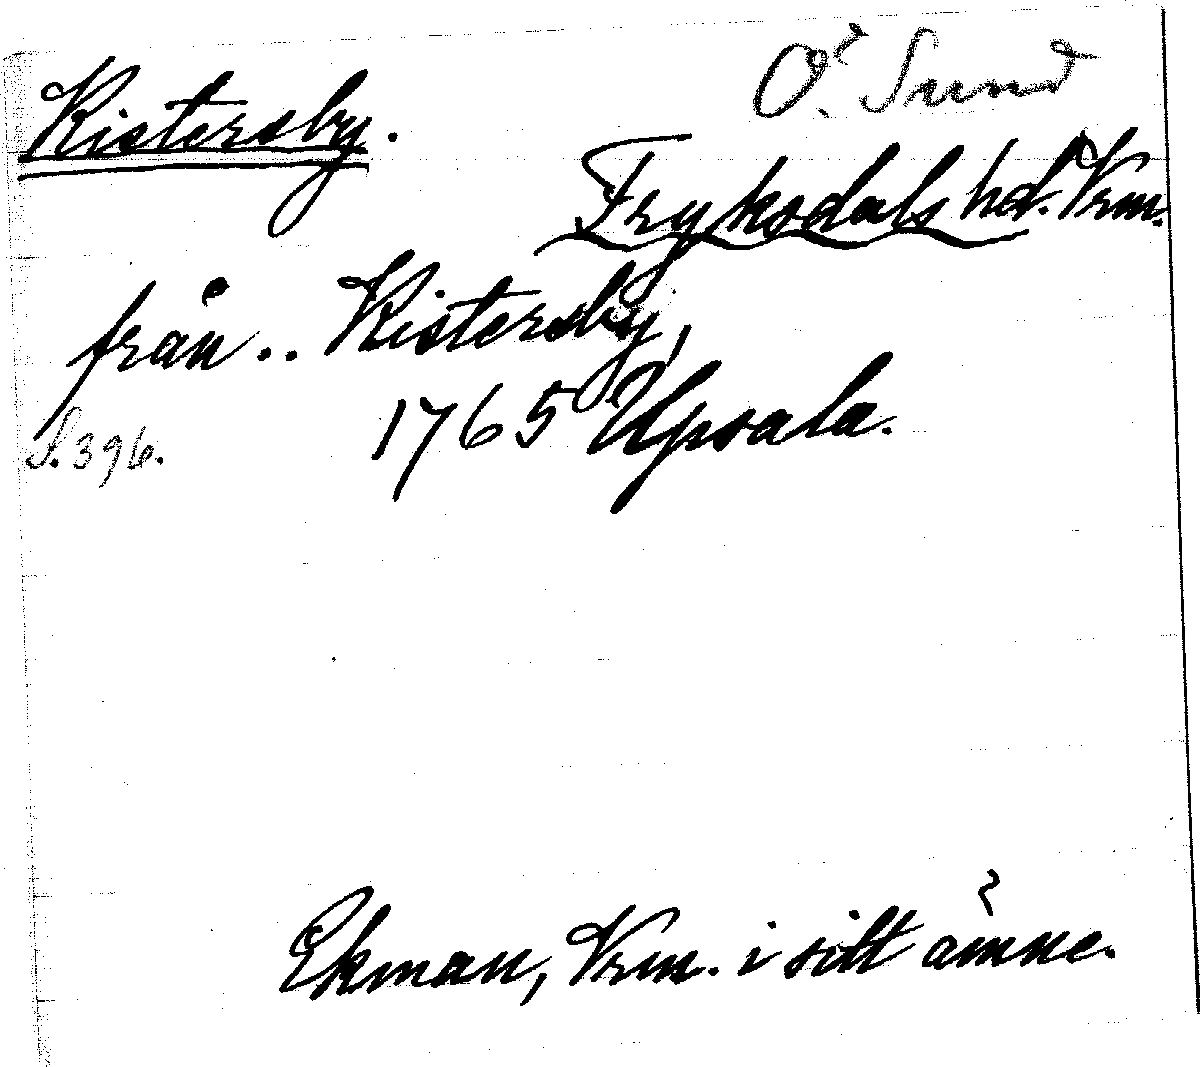 Ö. Sund
Kistersby.
Fryksdals hd. Vrm.
från .. Kistersby,
1765 Upsala.
S. 396.
Ekman, Vrm. i sitt ämne.